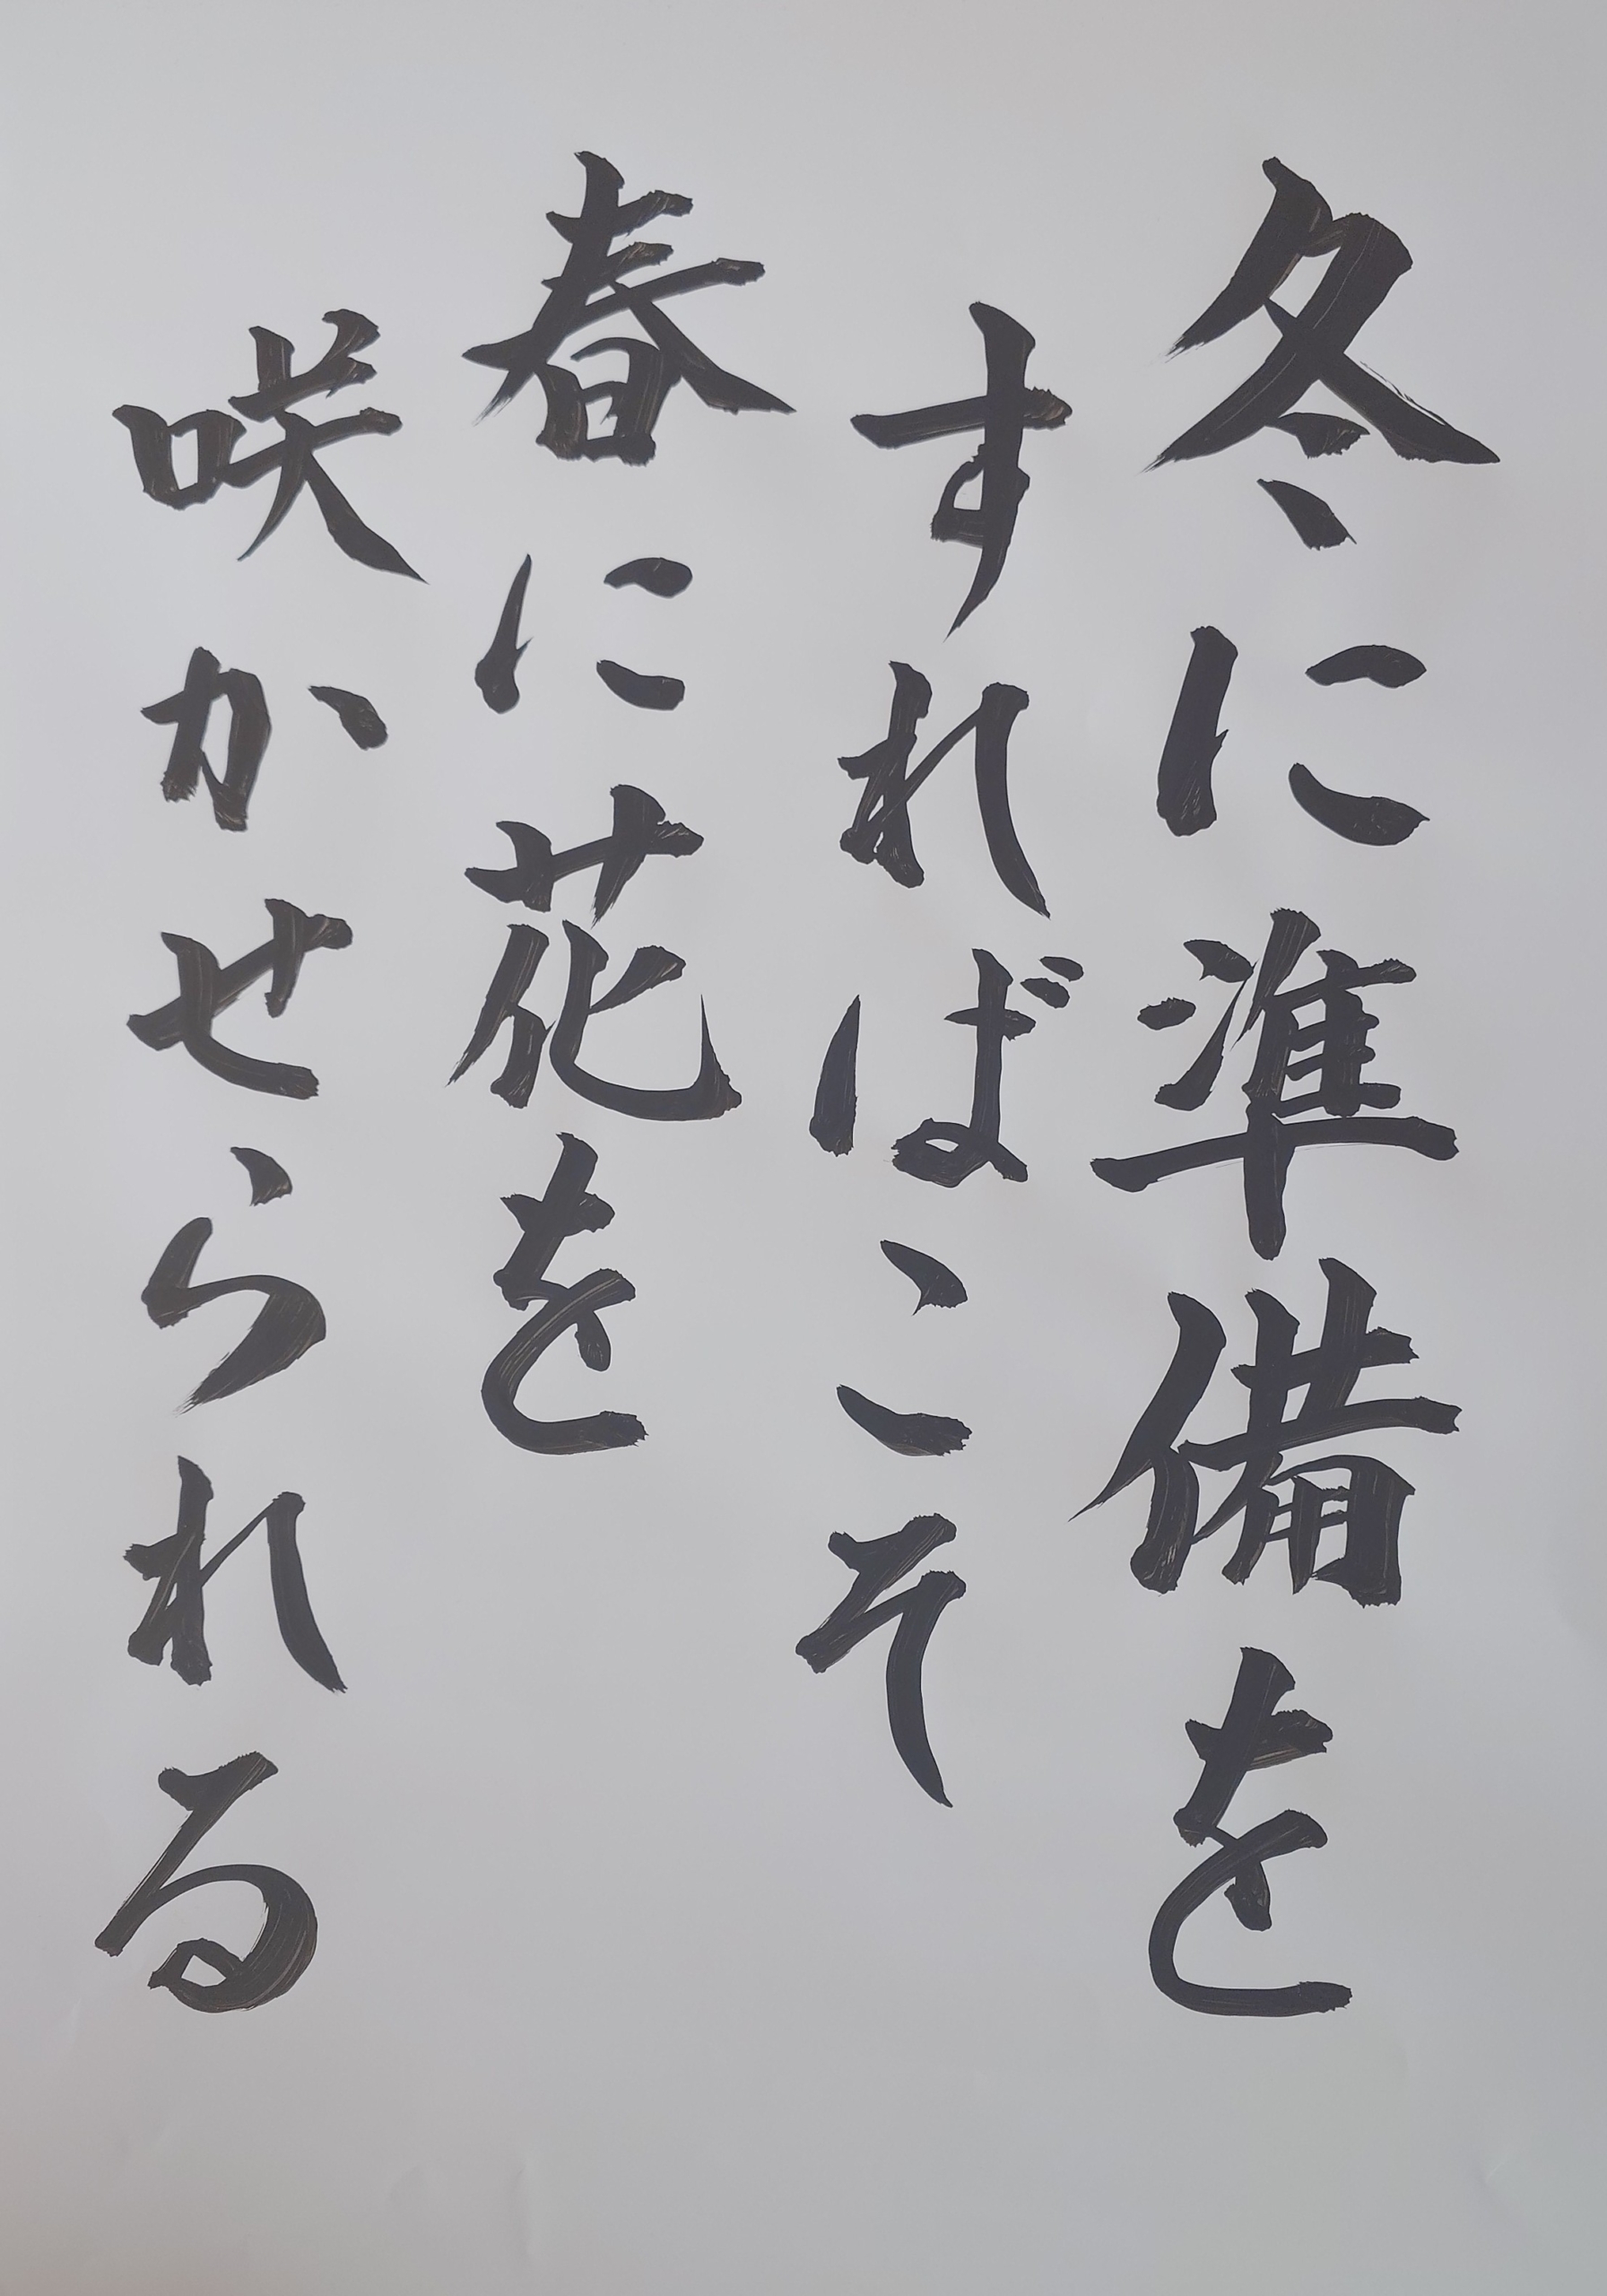 冬に準備を
すればこそ
春に花を
咲かせられる